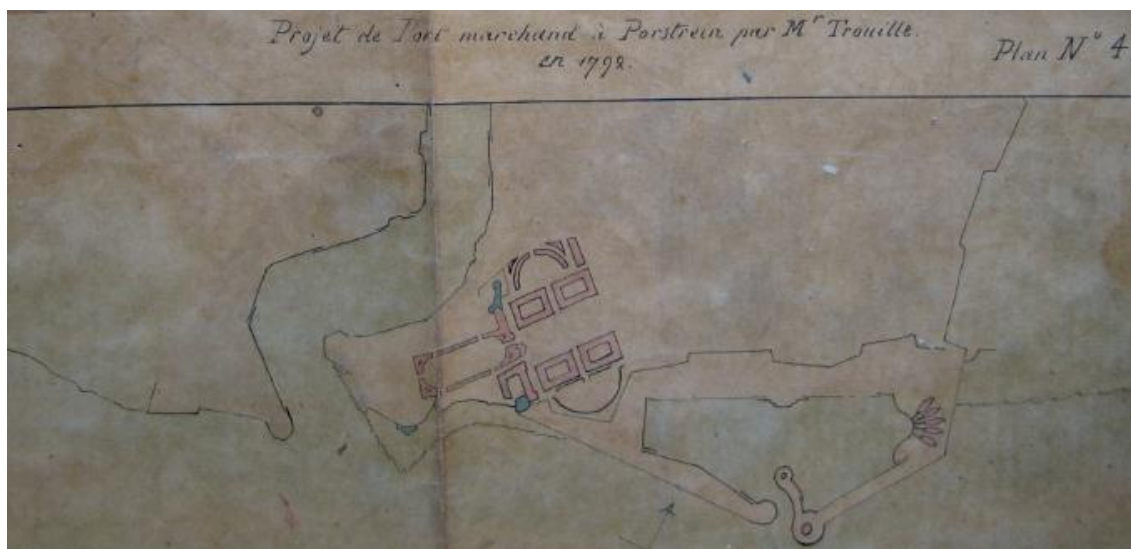 Projet de Port marchand à Porstrein par Mr Trouille.
en 1792.
Plan No 4